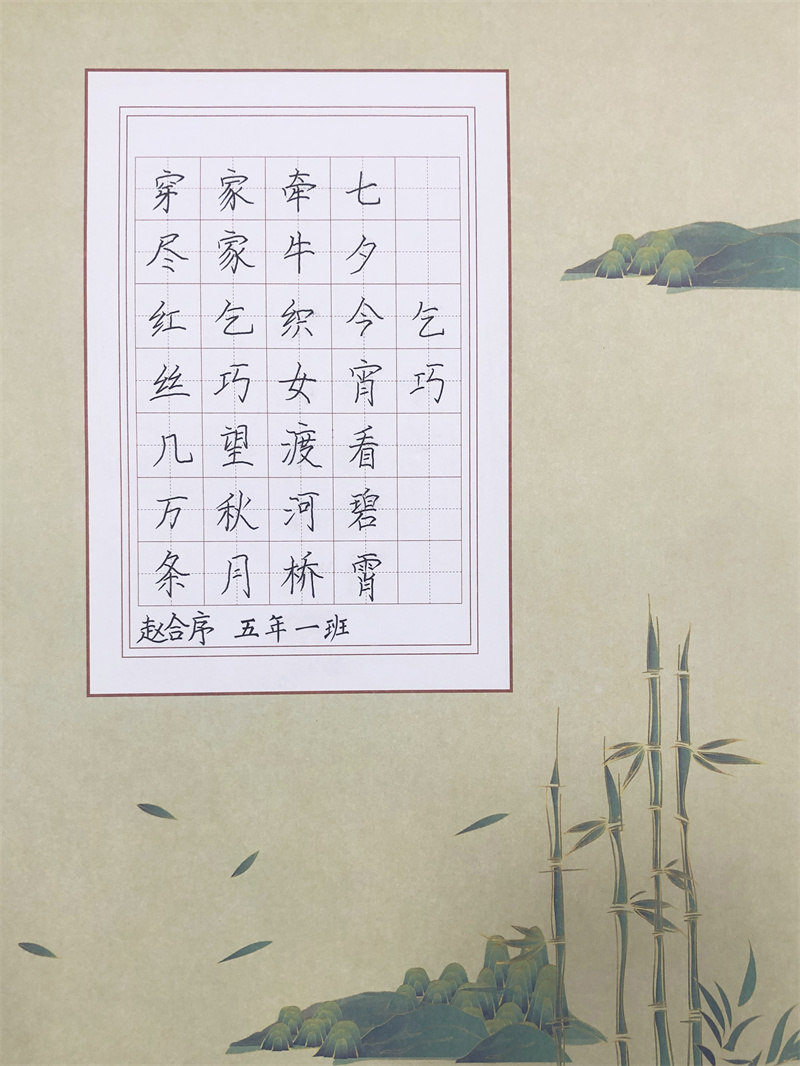 乞巧
七夕今宵看碧霄
牵牛织女渡河桥
家家乞巧望秋月
穿尽红丝几万条
赵合序 五年一班